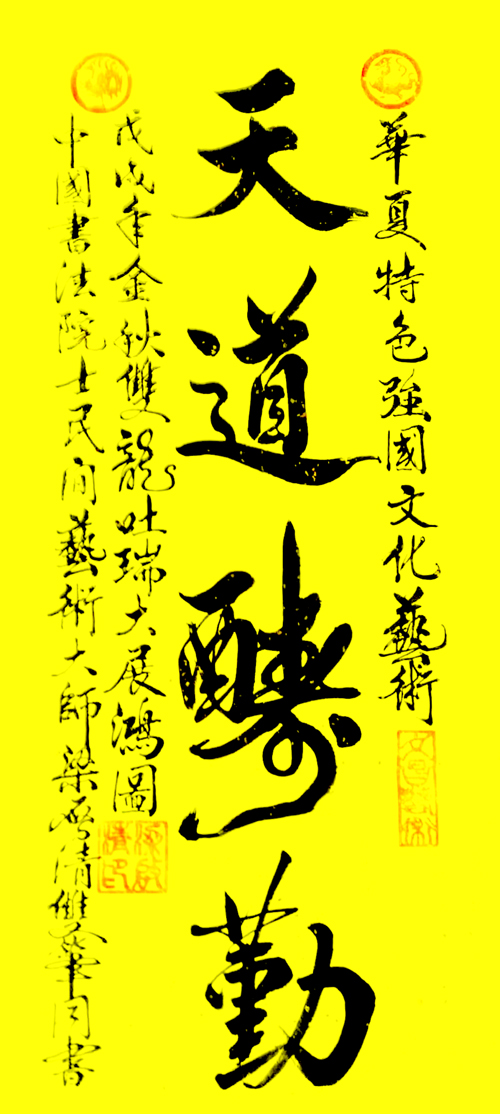 華夏特色強國文化藝術
天道醻勤
戊戌年金秋雙龍吐瑞大展鴻圖
中國書法院士民间藝術大師梁清雙筆同書